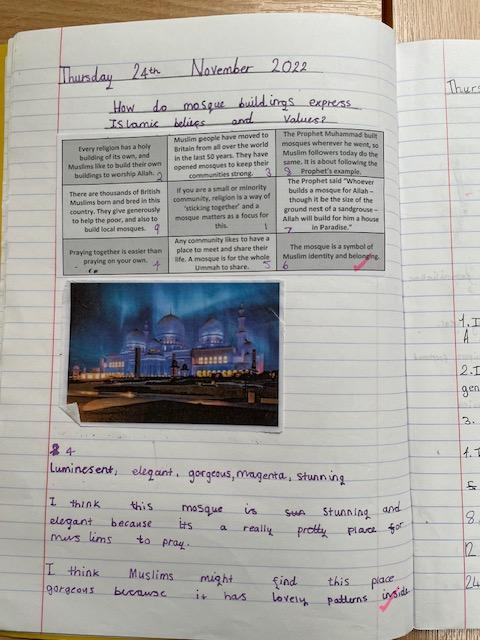 Thursday 24th November 2022
How do mosque buildings express
Islamic beliefs and values?
Every religion has a holy
building of its own, and
Muslims like to build their own
buildings to worship Allah. 2
Muslim people have moved to
Britain from all over the world
in the last 50 years. They have
opened mosques to keep their
communities strong. 3
The Prophet Muhammad built
mosques wherever he went, so
Muslim followers today do the
same. It is about following the
Prophet's example. 8
There are thousands of British
Muslims born and bred in this
country. They give generously
to help the poor, and also to
build local mosques. 9
If you are a small or minority
community, religion is a way of
'sticking together' and a
mosque matters as a focus for
this. 1
The Prophet said "Whoever
builds a mosque for Allah –
though it be the size of the
ground nest of a sandgrouse –
Allah will build for him a house
in Paradise." 7
Praying together is easier than
praying on your own. 4
Any community likes to have a
place to meet and share their
life. A mosque is for the whole
Ummah to share. 5
The mosque is a symbol of
Muslim identity and belonging.
6
4
Luminesent, elegant, gorgeous, magenta, stunning
I think this mosque is stunning and
elegant because its a really pretty place for
muslims to pray.
I think Muslims might find this place
gorgeous because it has lovely patterns inside
Thurs
1. I
A
2. I
gen
3.
1. T
8.
12
24